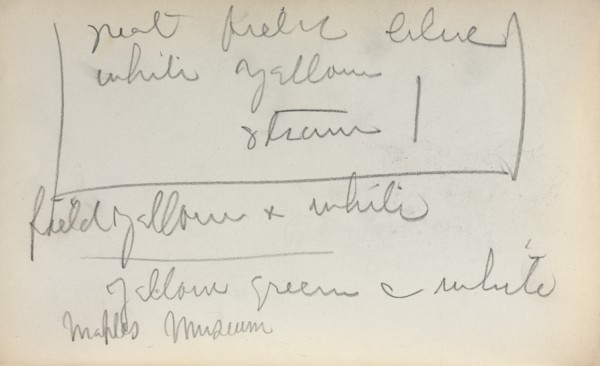 field blue
white yellow
field yellow & white
yellow green & white
Naples Museum